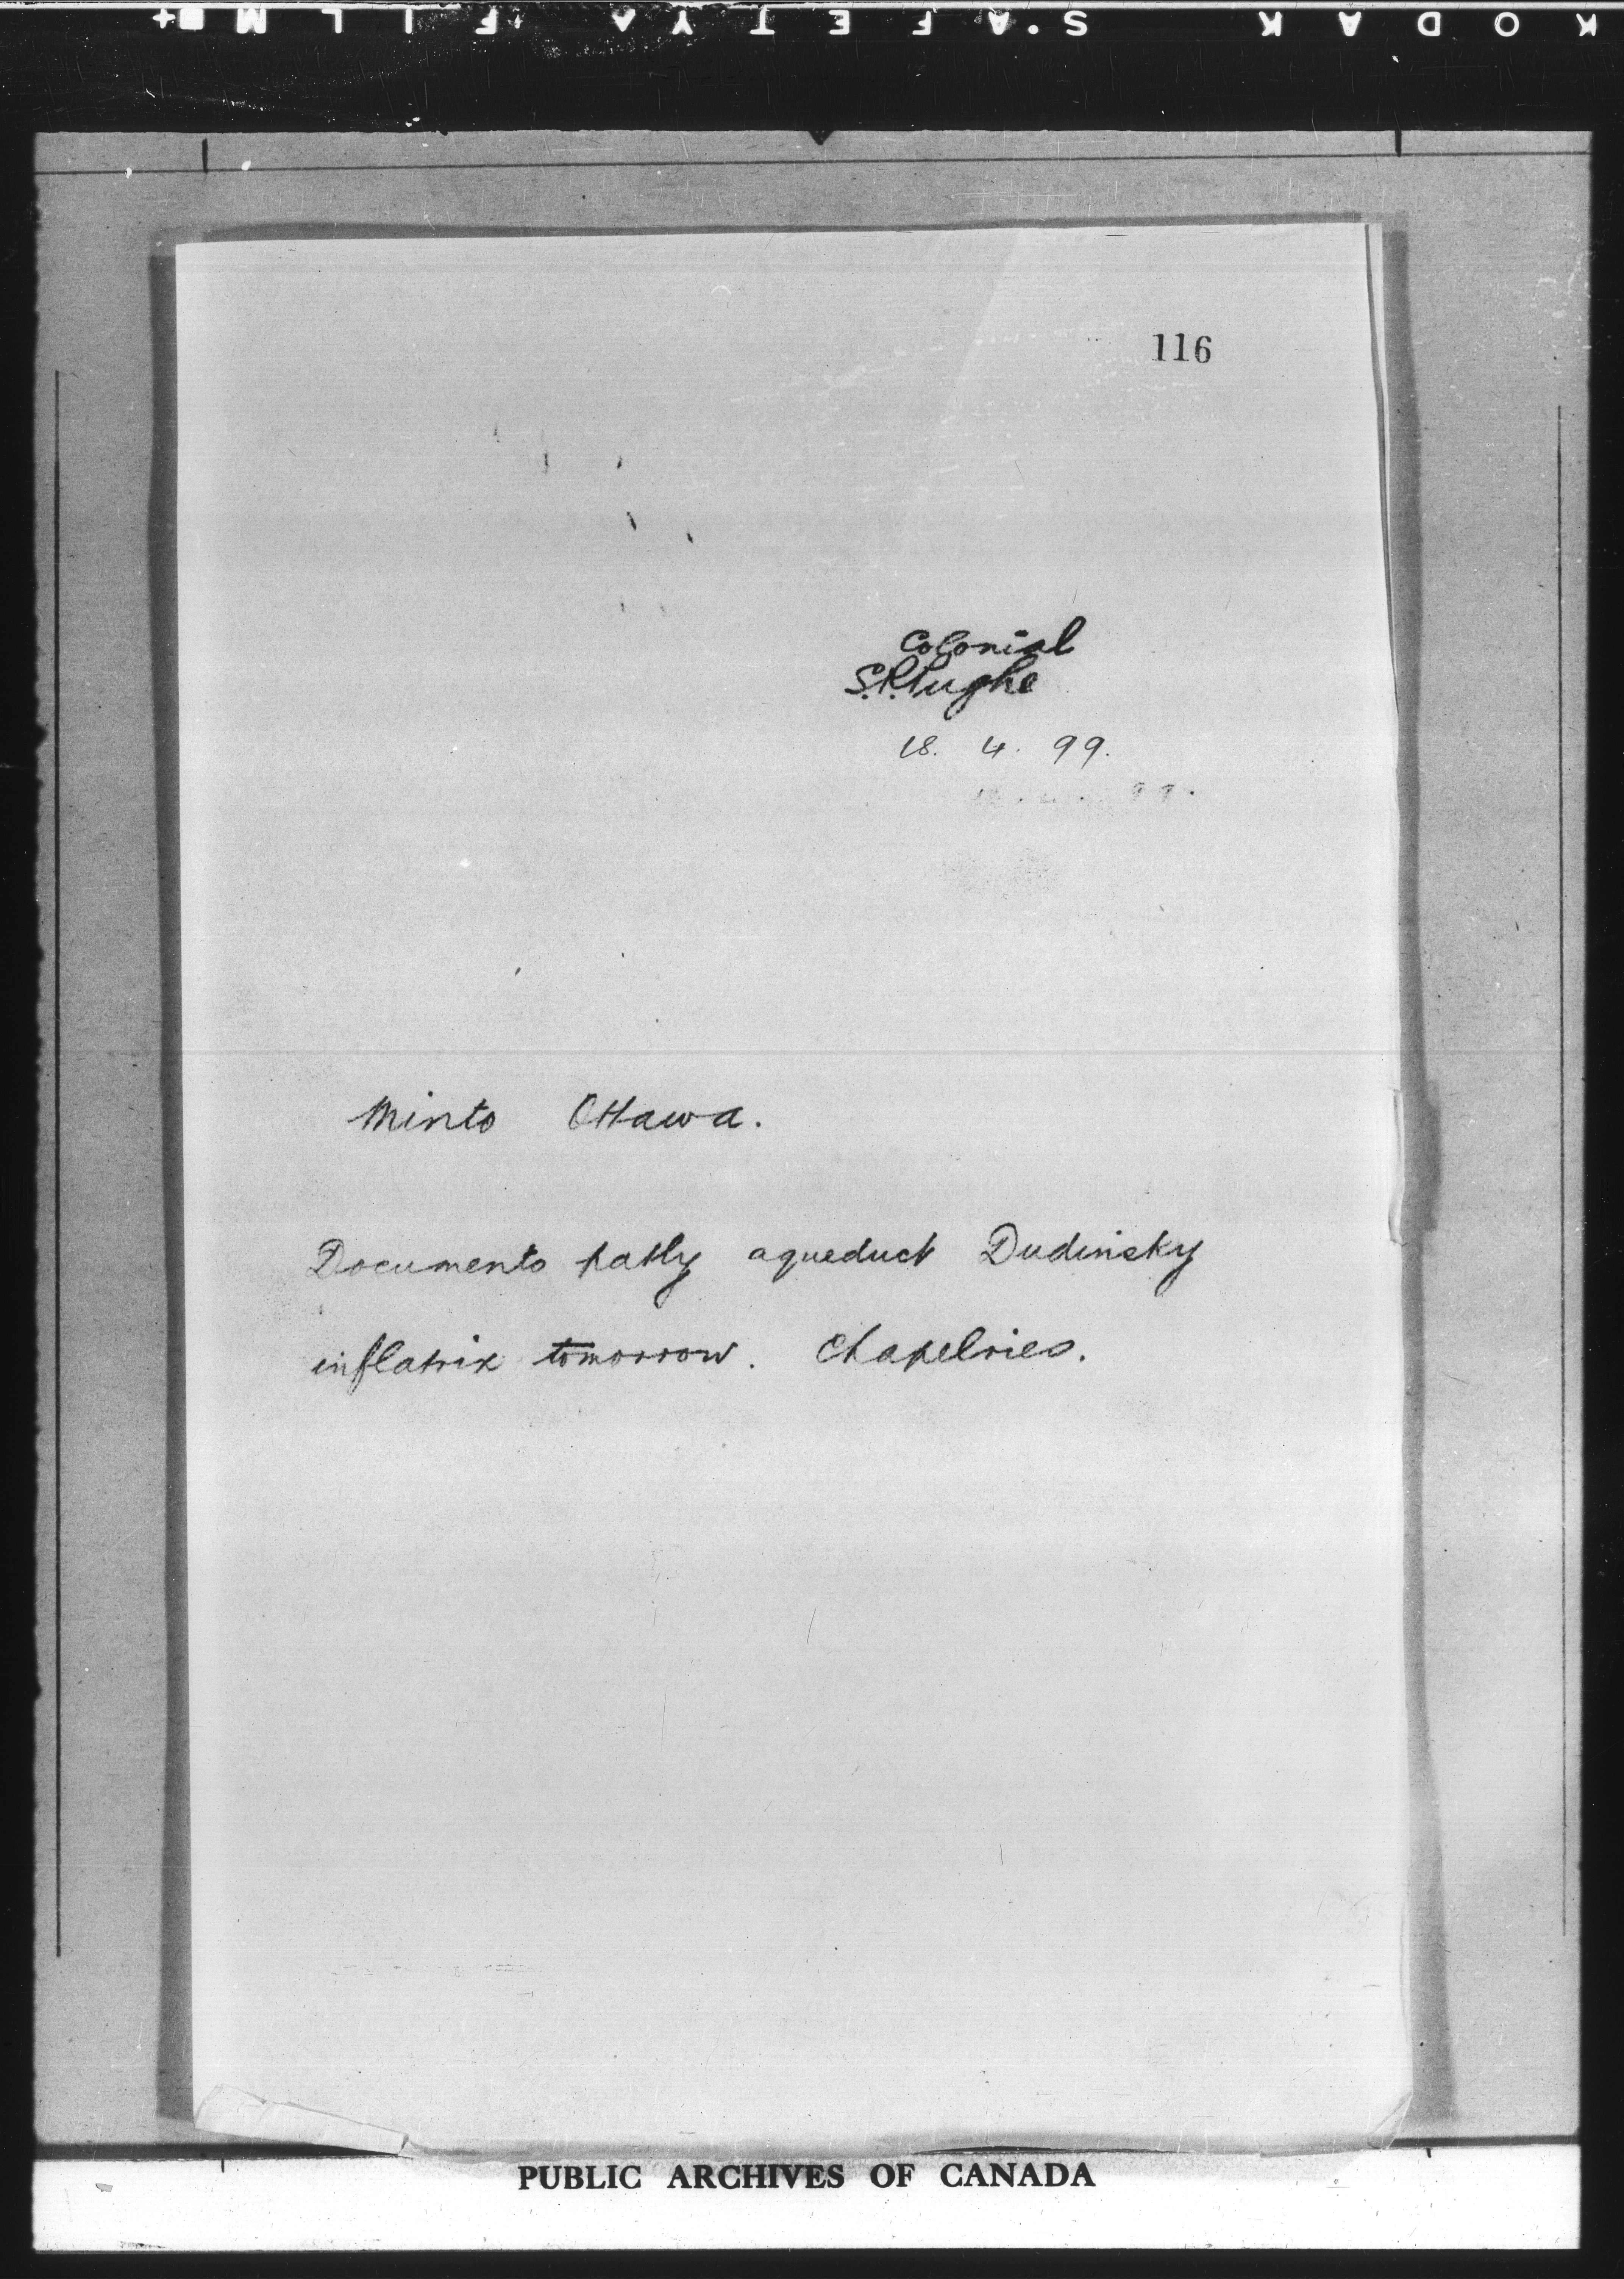 KODAK S·AFETY FILM
116
Colonial
S.R. Hughe
18. 4. 99.
Minto Ottawa.
Documents patly aqueduct Dudinsky
inflatrix tomorrow. Chapelries.
PUBLIC ARCHIVES OF CANADA